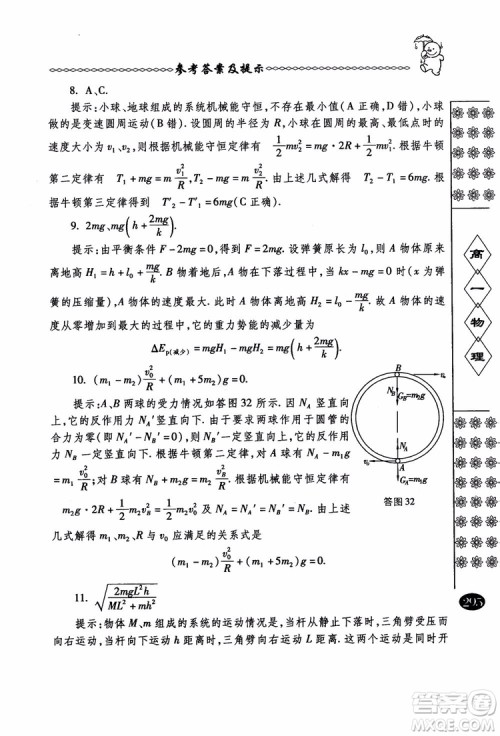 参考答案及提示
8. A、C.
提示：小球、地球组成的系统机械能守恒，不存在最小值（A 正确，D 错），小球
做的是变速圆周运动（B 错）. 设圆周的半径为 R、小球在圆周的最高点和最低点时的速
度大小为 v₁、v₂，则根据机械能守恒定律有 1/2 mv₁² + mg · 2R = 1/2 mv₂²，根据牛顿
第二定律有 T₁ + mg = m v₁²/R，T₂ − mg = m v₂²/R. 由上述几式解得 T₂ − T₁ = 6mg. 根
据牛顿第三定律得到 T′₂ − T′₁ = 6mg（C 正确）.
9. 2mg、mg(h + 2mg/k).
提示：由平衡条件 F − 2mg = 0，得 F = 2mg. 设弹簧原长为 l₀，则 A 物体原来
离地高 H₁ = h + l₀ + mg/k. 在 A 物体的下落过程中，当 kx − mg = 0，x = mg/k（弹簧
的压缩量），A 物体的速度最大. 此时 A 物体离地高为 H₂ = l₀ − mg/k. 故 A 物体的速
度从零增加到最大的过程中，它的重力势能的减少量为
ΔEp(减少) = mgH₁ − mgH₂ = mg(h + 2mg/k)
10. (m₁ − m₂) v₀²/R + (m₁ + 5m₂)g = 0.
提示：A、B两球的受力情况如答图 32 所示. 由于 A 球的 N_A 竖直向
上，它的反作用力 N_A′ 一定竖直向下. 由于要求两球作用于圆管的
合力为零（即 N_A′ − N_B′ = 0），故 N_B′ 一定竖直向上，它的反作用力
N_B 一定竖直向下. 根据牛顿第二定律，对 A 球有 N_A − m₁g =
m₁ v₀²/R；对 B 球有 N_B + m₂g = m₂ v²/R. 根据机械能守恒定律有 1/2 m₂v₀² =
m₂g · 2R + 1/2 m₂v². 根据牛顿第三定律有 N_A = N_A′、N_B = N_B′. 由上述
几式解得 m₁、m₂、R 与 v₀ 应满足的关系式是
(m₁ − m₂) v₀²/R + (m₁ + 5m₂)g = 0.
B
v
N_B
G_B = m₂g
N_A
A
G_A = m₁g
答图 32
11. √(2mgL²h / (ML² + mh²))
提示：物体 M、m 组成的系统的运动情况是，当杆从静止下落时，三角劈受杆压迫而
向右运动，当杆向下运动 h 时，三角劈向右运动 L. 这两个运动是同时开
高一物理
295
答案圈